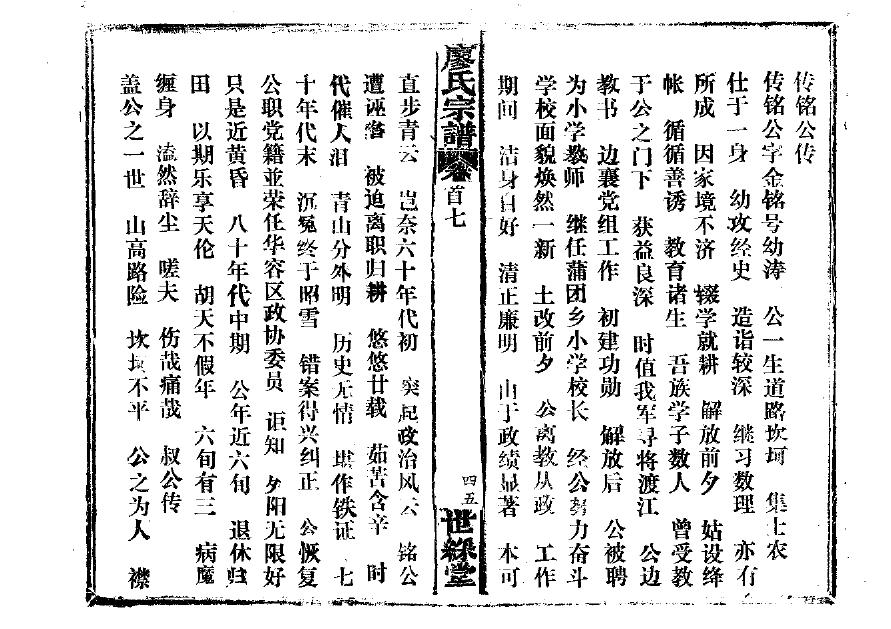 传铭公传
传铭公字金铭号幼涛 公一生道路坎坷 集士农
仕于一身 幼攻经史 造诣较深 继习数理 亦有
所成 因家境不济 辍学就耕 解放前夕 姑设绛
帐 循循善诱 教育诸生 吾族学子数人 曾受教
于公之门下 获益良深 时值我军寻将渡江 公边
教书 边襄党组工作 初建功勋 解放后 公被聘
为小学教师 继任蒲团乡小学校长 经公努力奋斗
学校面貌焕然一新 土改前夕 公离教从政 工作
期间 洁身自好 清正廉明 由于政绩显著 本可
廖氏宗譜 卷首七 四五 世綵堂
直步青云 岂奈六十年代初 突起政治风云 铭公
遭诬 被迫离职归耕 悠悠廿载 茹苦含辛 时
代催人泪 青山分外明 历史无情 堪作铁证 七
十年代末 沉冤终于昭雪 错案得兴纠正 公恢复
公职党籍並荣任华容区政协委员 讵知 夕阳无限好
只是近黄昏 八十年代中期 公年近六旬 退休归
田 以期乐享天伦 胡天不假年 六旬有三 病魔
缠身 溘然辞尘 嗟夫 伤哉痛哉 叔公传
盖公之一世 山高路险 坎坷不平 公之为人 襟